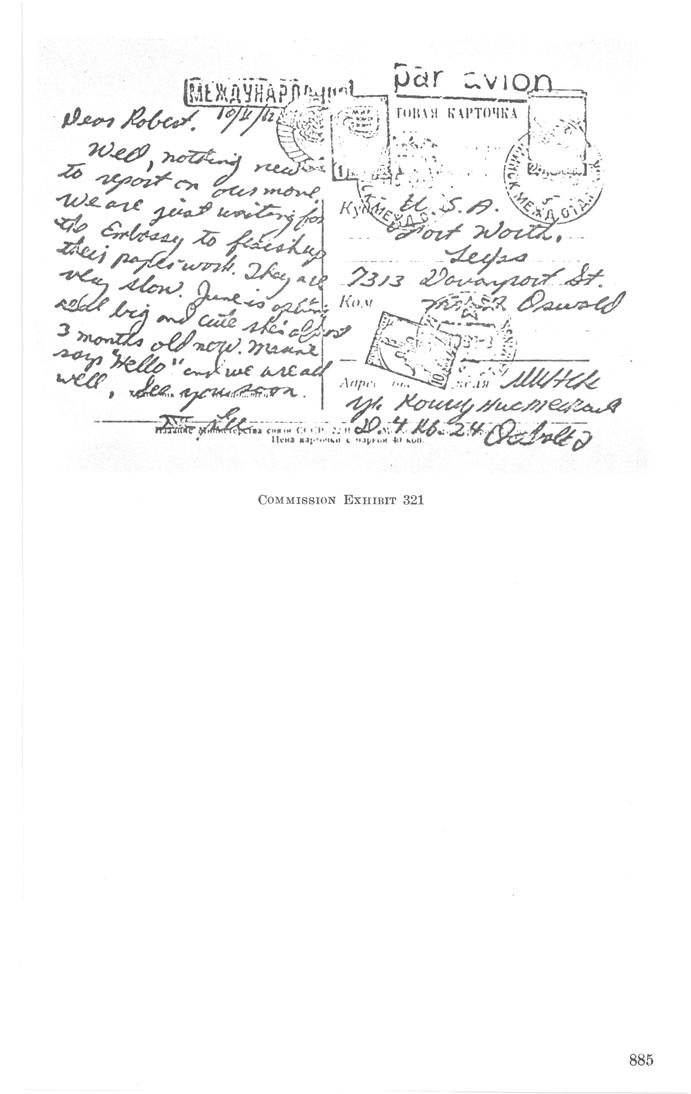 МЕЖДУНАРОДНОЕ
par avion
Dear Robert.
ТОВАЯ КАРТОЧКА
Well, nothing new
to report on our move
We are just waiting for
the Embassy to finish up
their paper work. They are
very slow. June is
real big and cute she's almost
3 months old now.
says "Hello" and we are all
well, See you soon.
Lee
U. S. A.
Fort Worth,
7313 Davenport St.
Ком
Oswald
Адрес
МИНСК
ул.
Д. 4 кв. 24
Издание Министерства связи СССР
Цена карточки с маркой 40 коп.
COMMISSION EXHIBIT 321
885